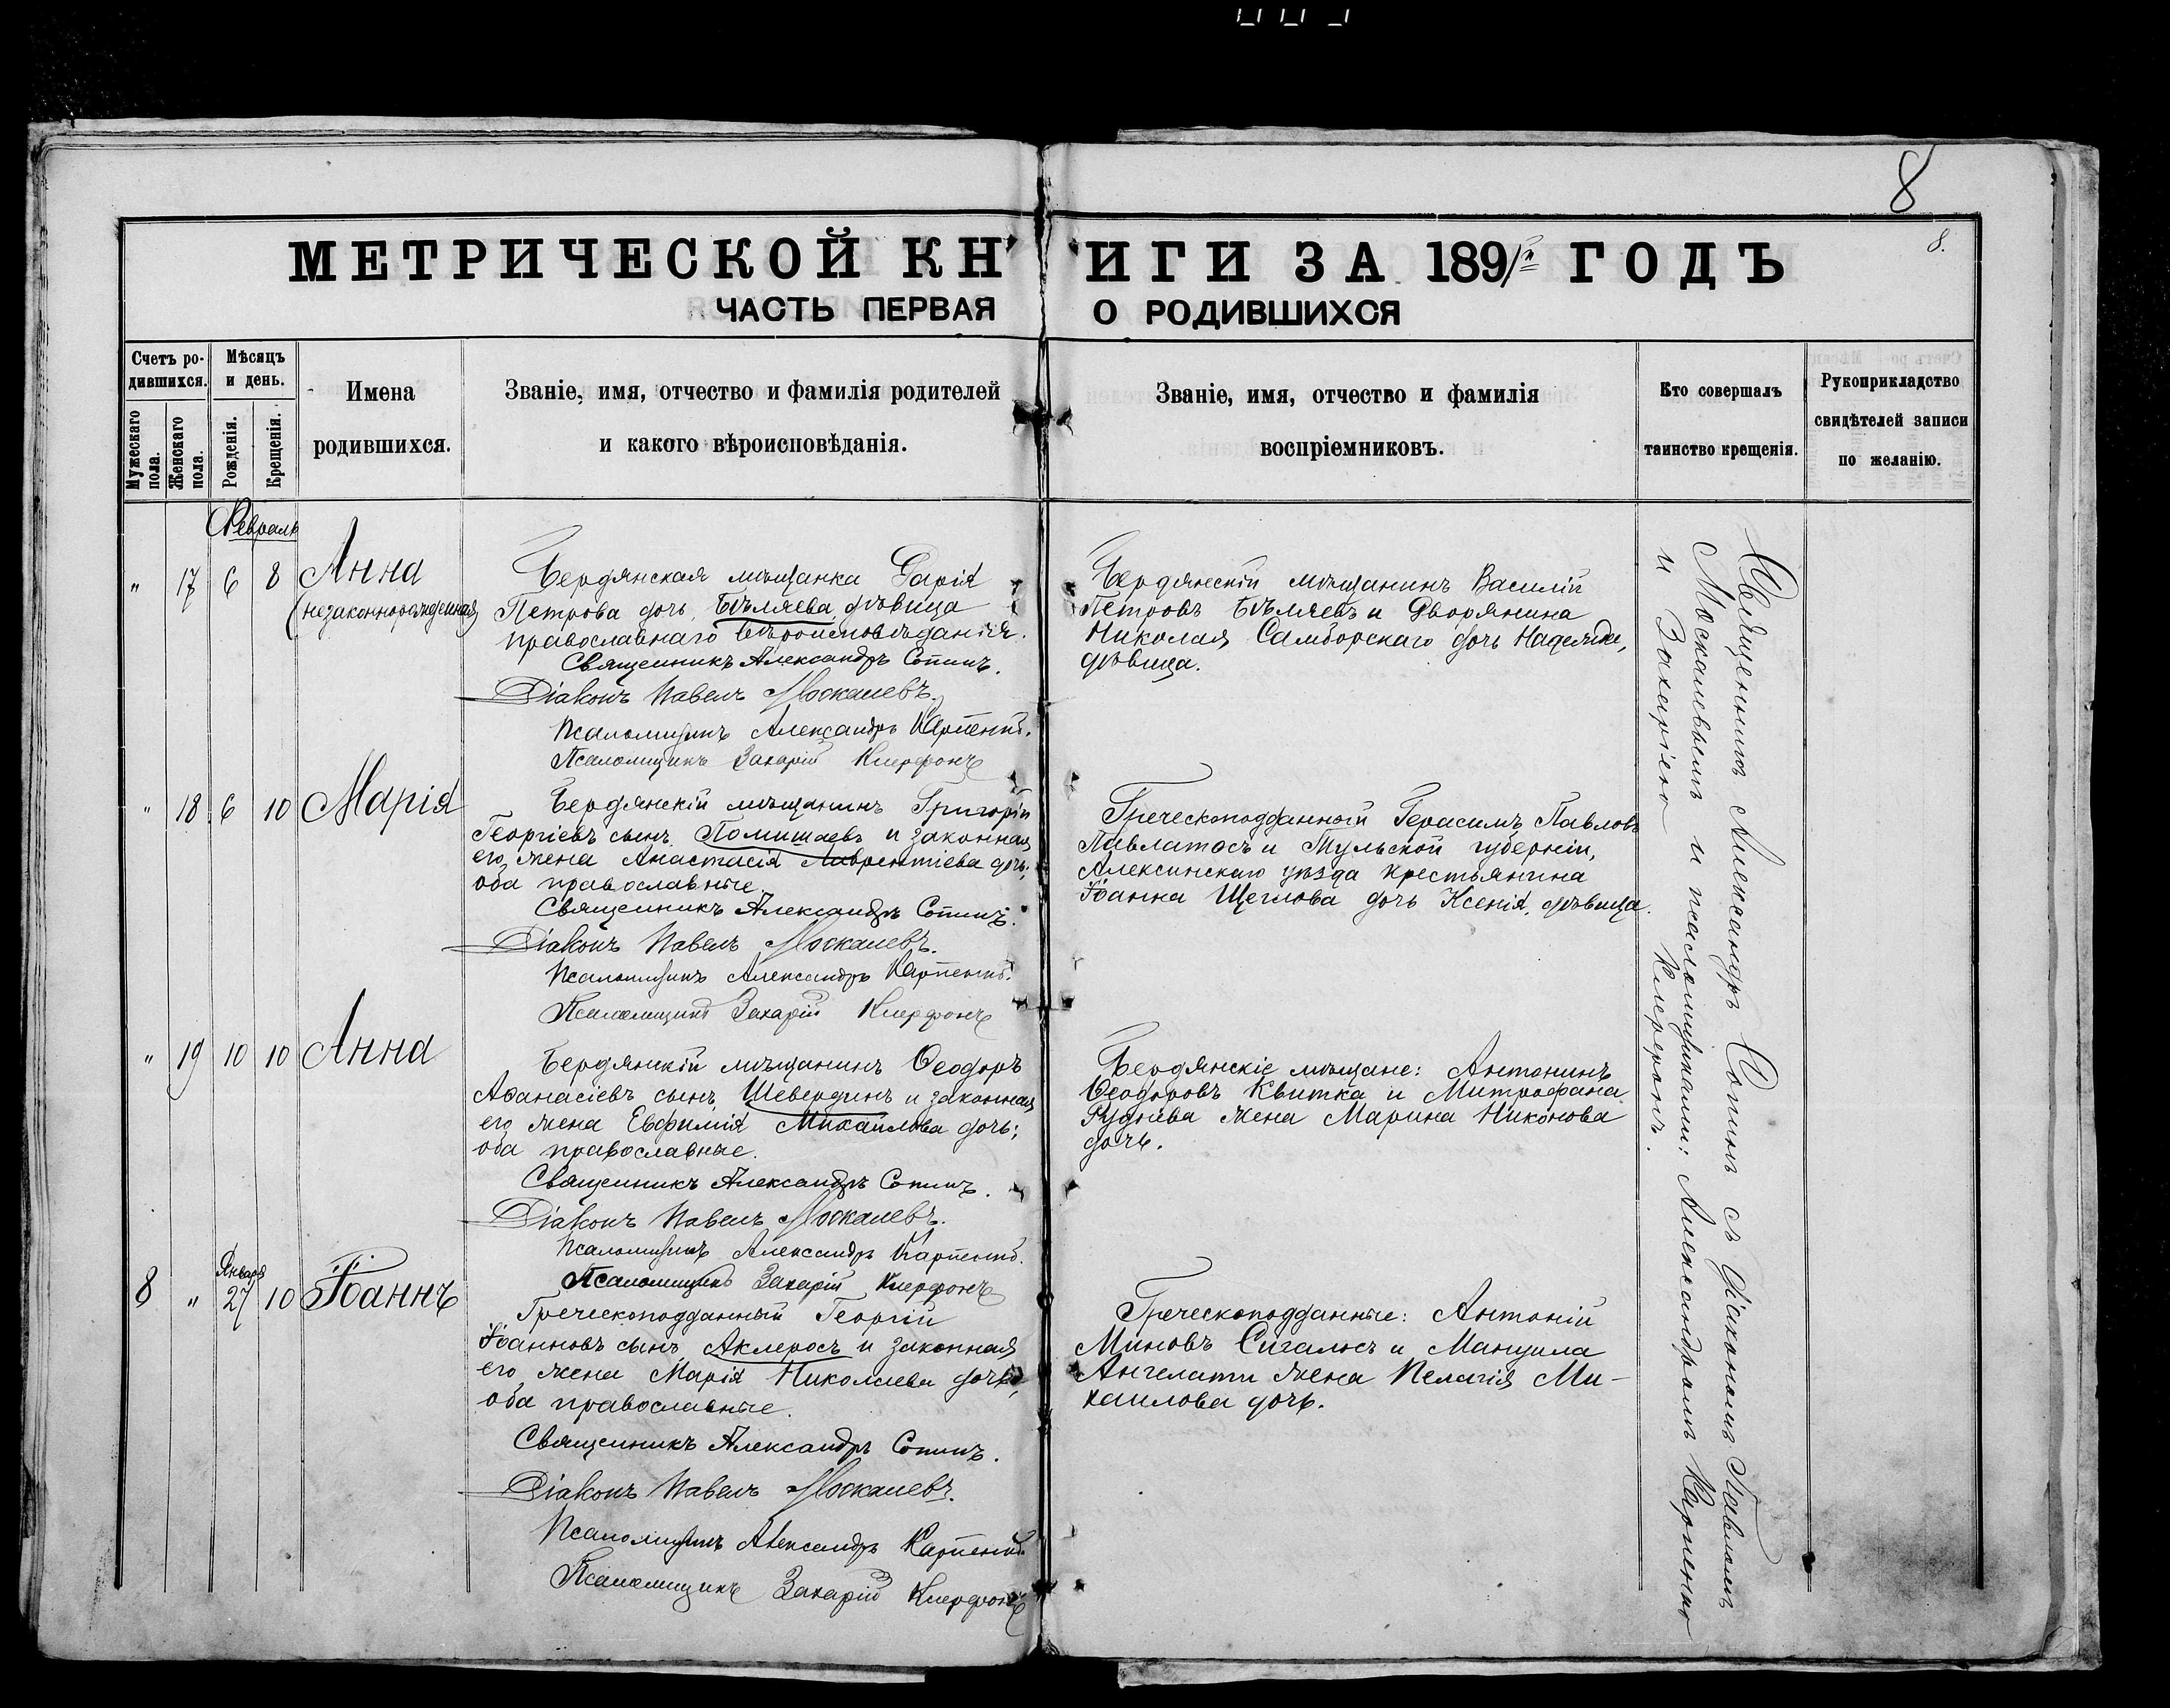 8
8.
МЕТРИЧЕСКОЙ КНИГИ ЗА 1891й ГОДЪ
ЧАСТЬ ПЕРВАЯ О РОДИВШИХСЯ
Счетъ родившихся.
Мужескаго пола.
Женскаго пола.
Мѣсяцъ и день.
Рожденія.
Крещенія.
Имена
родившихся.
Званіе, имя, отчество и фамилія родителей
и какого вѣроисповѣданія.
Званіе, имя, отчество и фамилія
воспріемниковъ.
Кто совершалъ
таинство крещенія.
Рукоприкладство
свидѣтелей записи
по желанію.
Февраль
" 17 6 8 Анна
(незаконнорожденная)
Бердянская мѣщанка Дарія
Петрова дочь, Бѣляева, дѣвица
православнаго вѣроисповѣданія.
Священникъ Александръ Сопинъ.
Діаконъ Павелъ Москалевъ.
Псаломщикъ Александръ Карпенко.
Псаломщикъ Захарій
Бердянскій мѣщанинъ Василій
Петровъ Бѣляевъ и Дворянина
Николая Самборскаго дочь Надежда,
дѣвица.
" 18 6 10 Марія
Бердянскій мѣщанинъ Григорій
Георгіевъ сынъ, и законная
его жена Анастасія Лаврентіева дочь;
оба православные.
Священникъ Александръ Сопинъ.
Діаконъ Павелъ Москалевъ.
Псаломщикъ Александръ Карпенко.
Псаломщикъ Захарій
Греческоподданный Герасимъ Павловъ
Павлатосъ и Тульской губерніи,
Алексинскаго уѣзда крестьянина
Іоанна Щеглова дочь Ксенія, дѣвица.
" 19 10 10 Анна
Бердянскій мѣщанинъ Ѳеодоръ
Аѳанасіевъ сынъ, Шевердинъ и законная
его жена Евфимія Михаилова дочь;
оба православные.
Священникъ Александръ Сопинъ.
Діаконъ Павелъ Москалевъ.
Псаломщикъ Александръ Карпенко.
Псаломщикъ Захарій
Бердянскіе мѣщане: Антонинъ
Ѳеодоровъ Квитка и Митрофана
Руднева жена Марина Никонова
дочь.
Января
8 " 27 10 Іоаннъ
Греческоподданный Георгій
Іоанновъ сынъ, Аклеросъ и законная
его жена Марія Николаева дочь;
оба православные.
Священникъ Александръ Сопинъ.
Діаконъ Павелъ Москалевъ.
Псаломщикъ Александръ Карпенко
Псаломщикъ Захарій
Греческоподданные: Антоній
Миновъ Сигалосъ и Мануила
Ангелати жена Пелагія Ми-
хаилова дочь.
Священникъ Александръ Сопинъ съ діакономъ Павломъ
Москалевымъ и псаломщиками: Александромъ Карпенко
и Захаріею